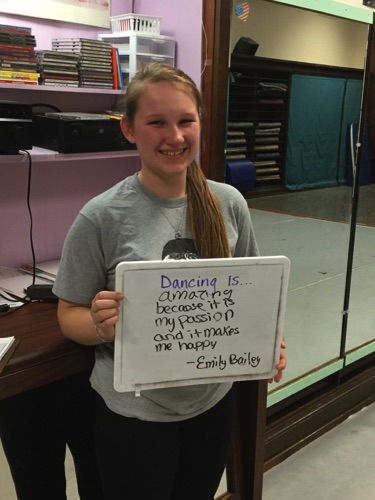 Dancing Is...
amazing
because it is
my passion
and it makes
me happy
-Emily Bailey